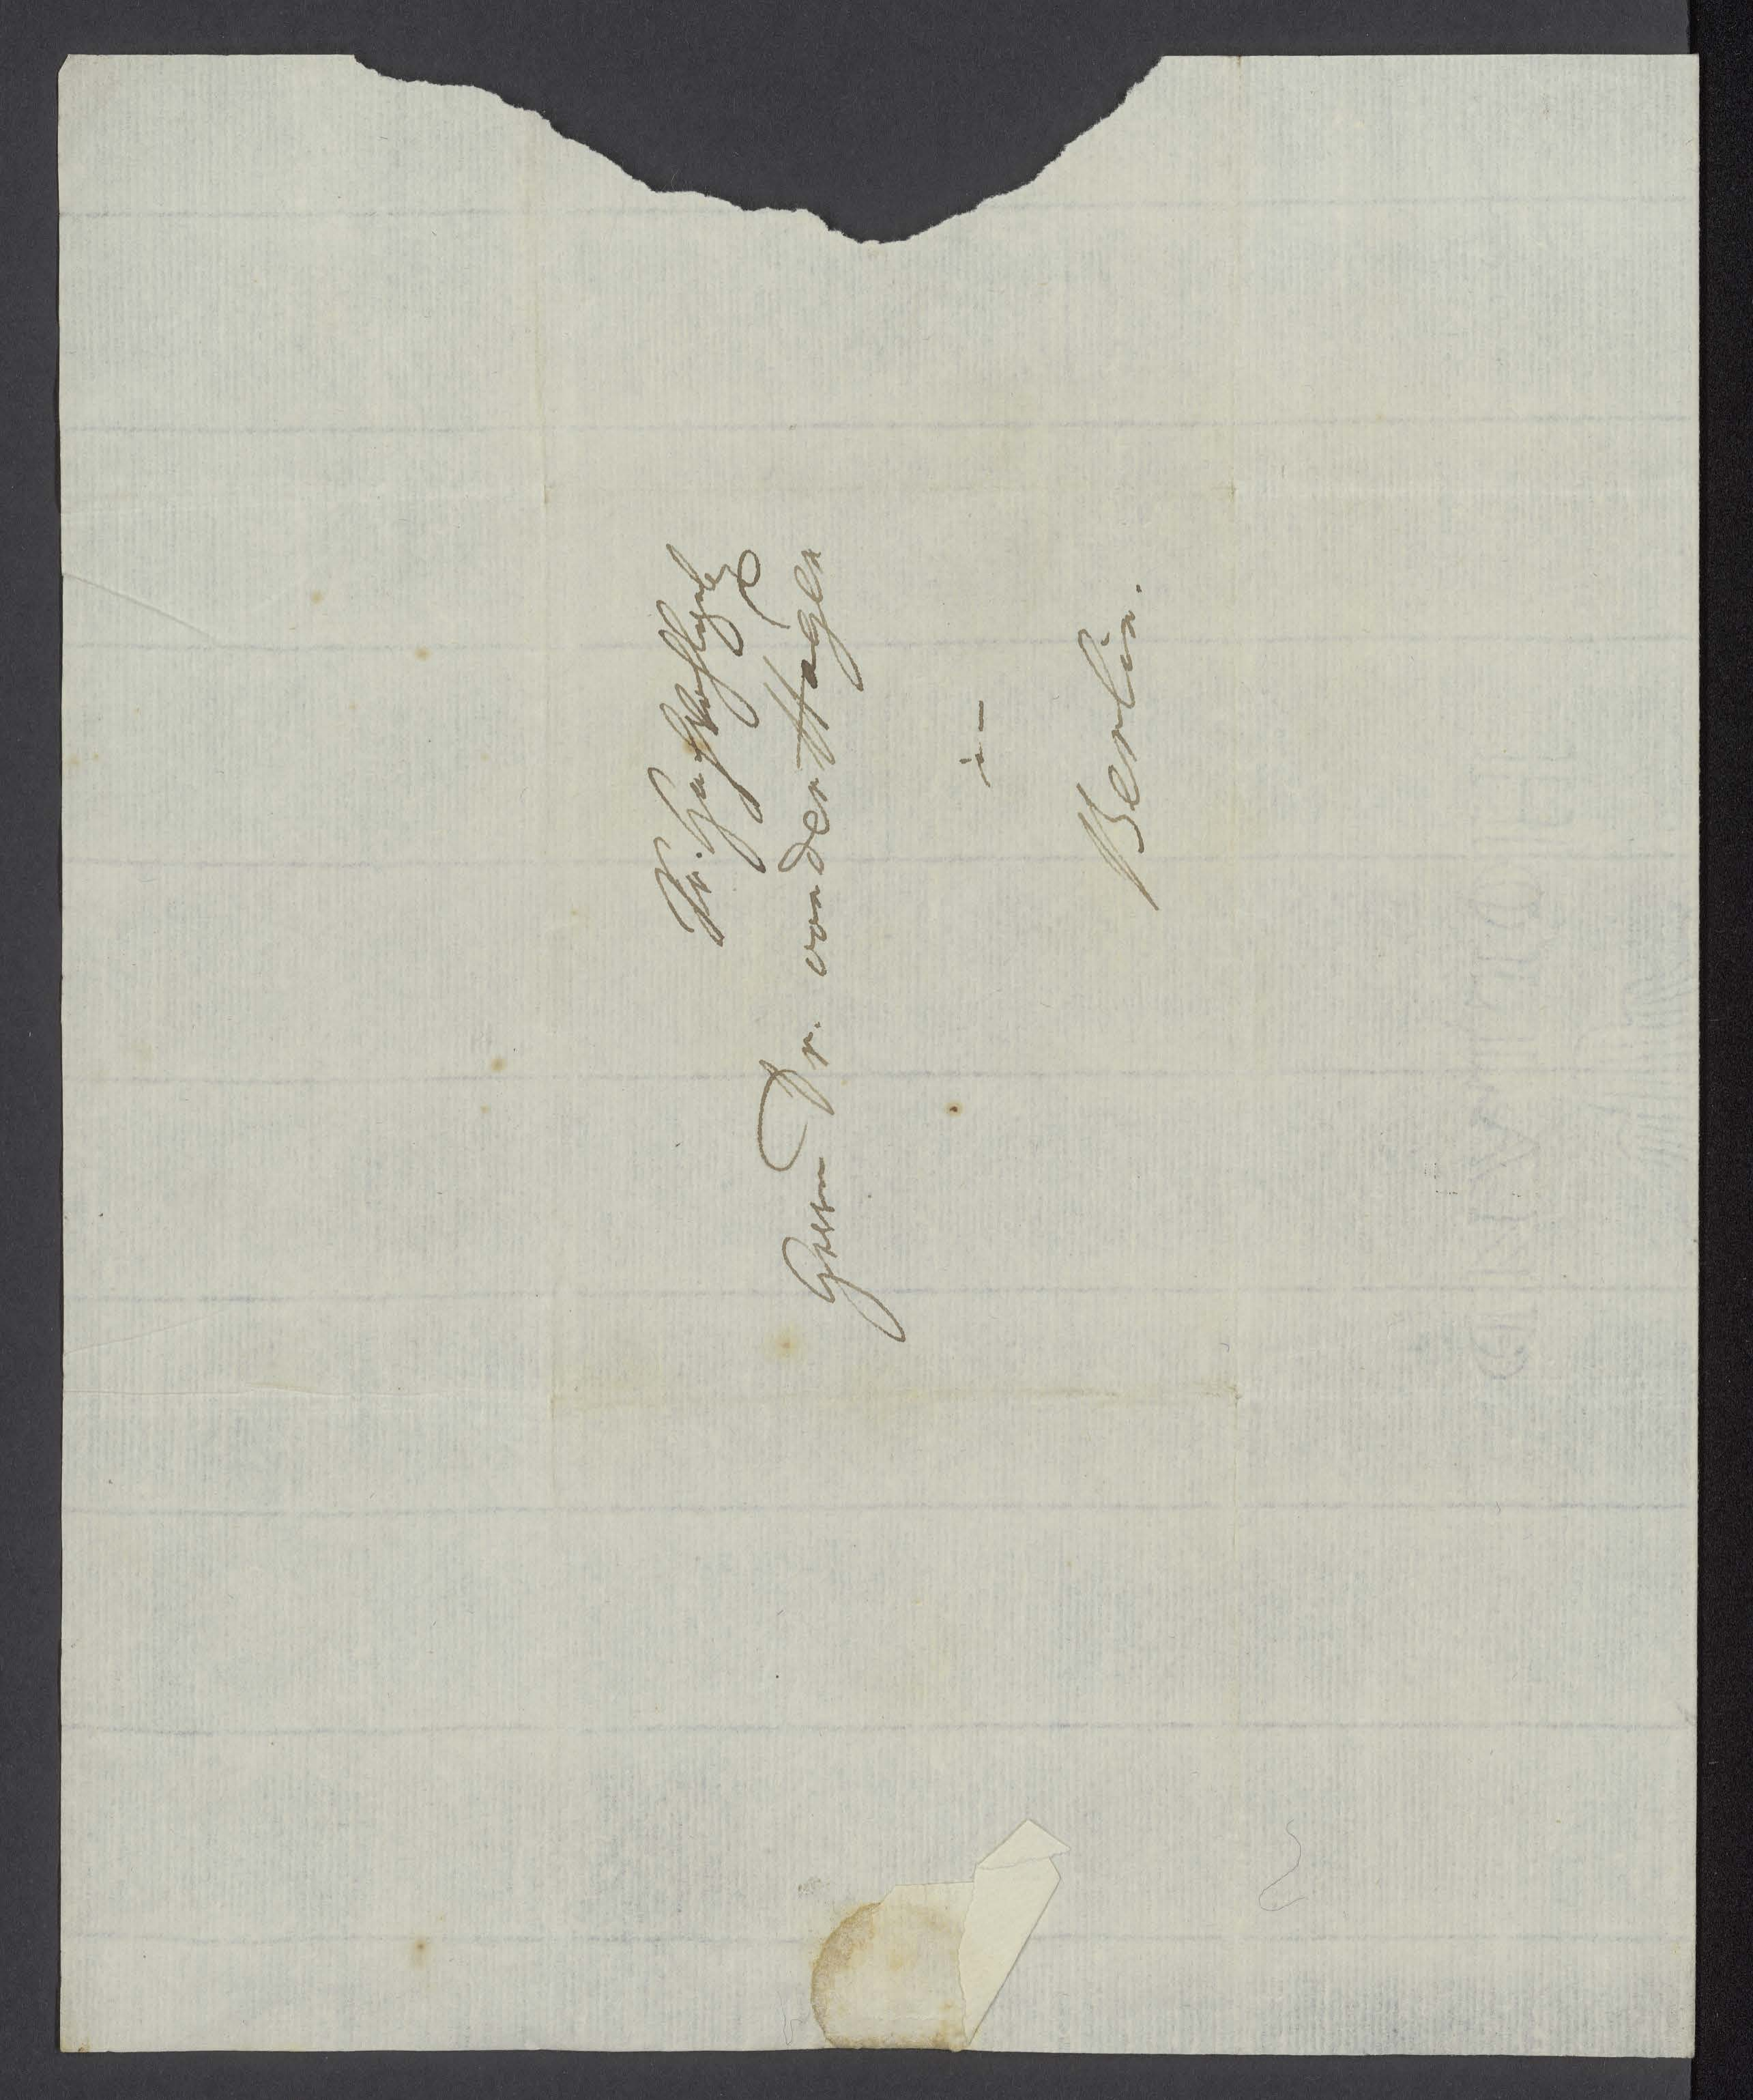 Sr. Hochwohlgeb
Herrn Dr. von der Hagen
in
Berlin.